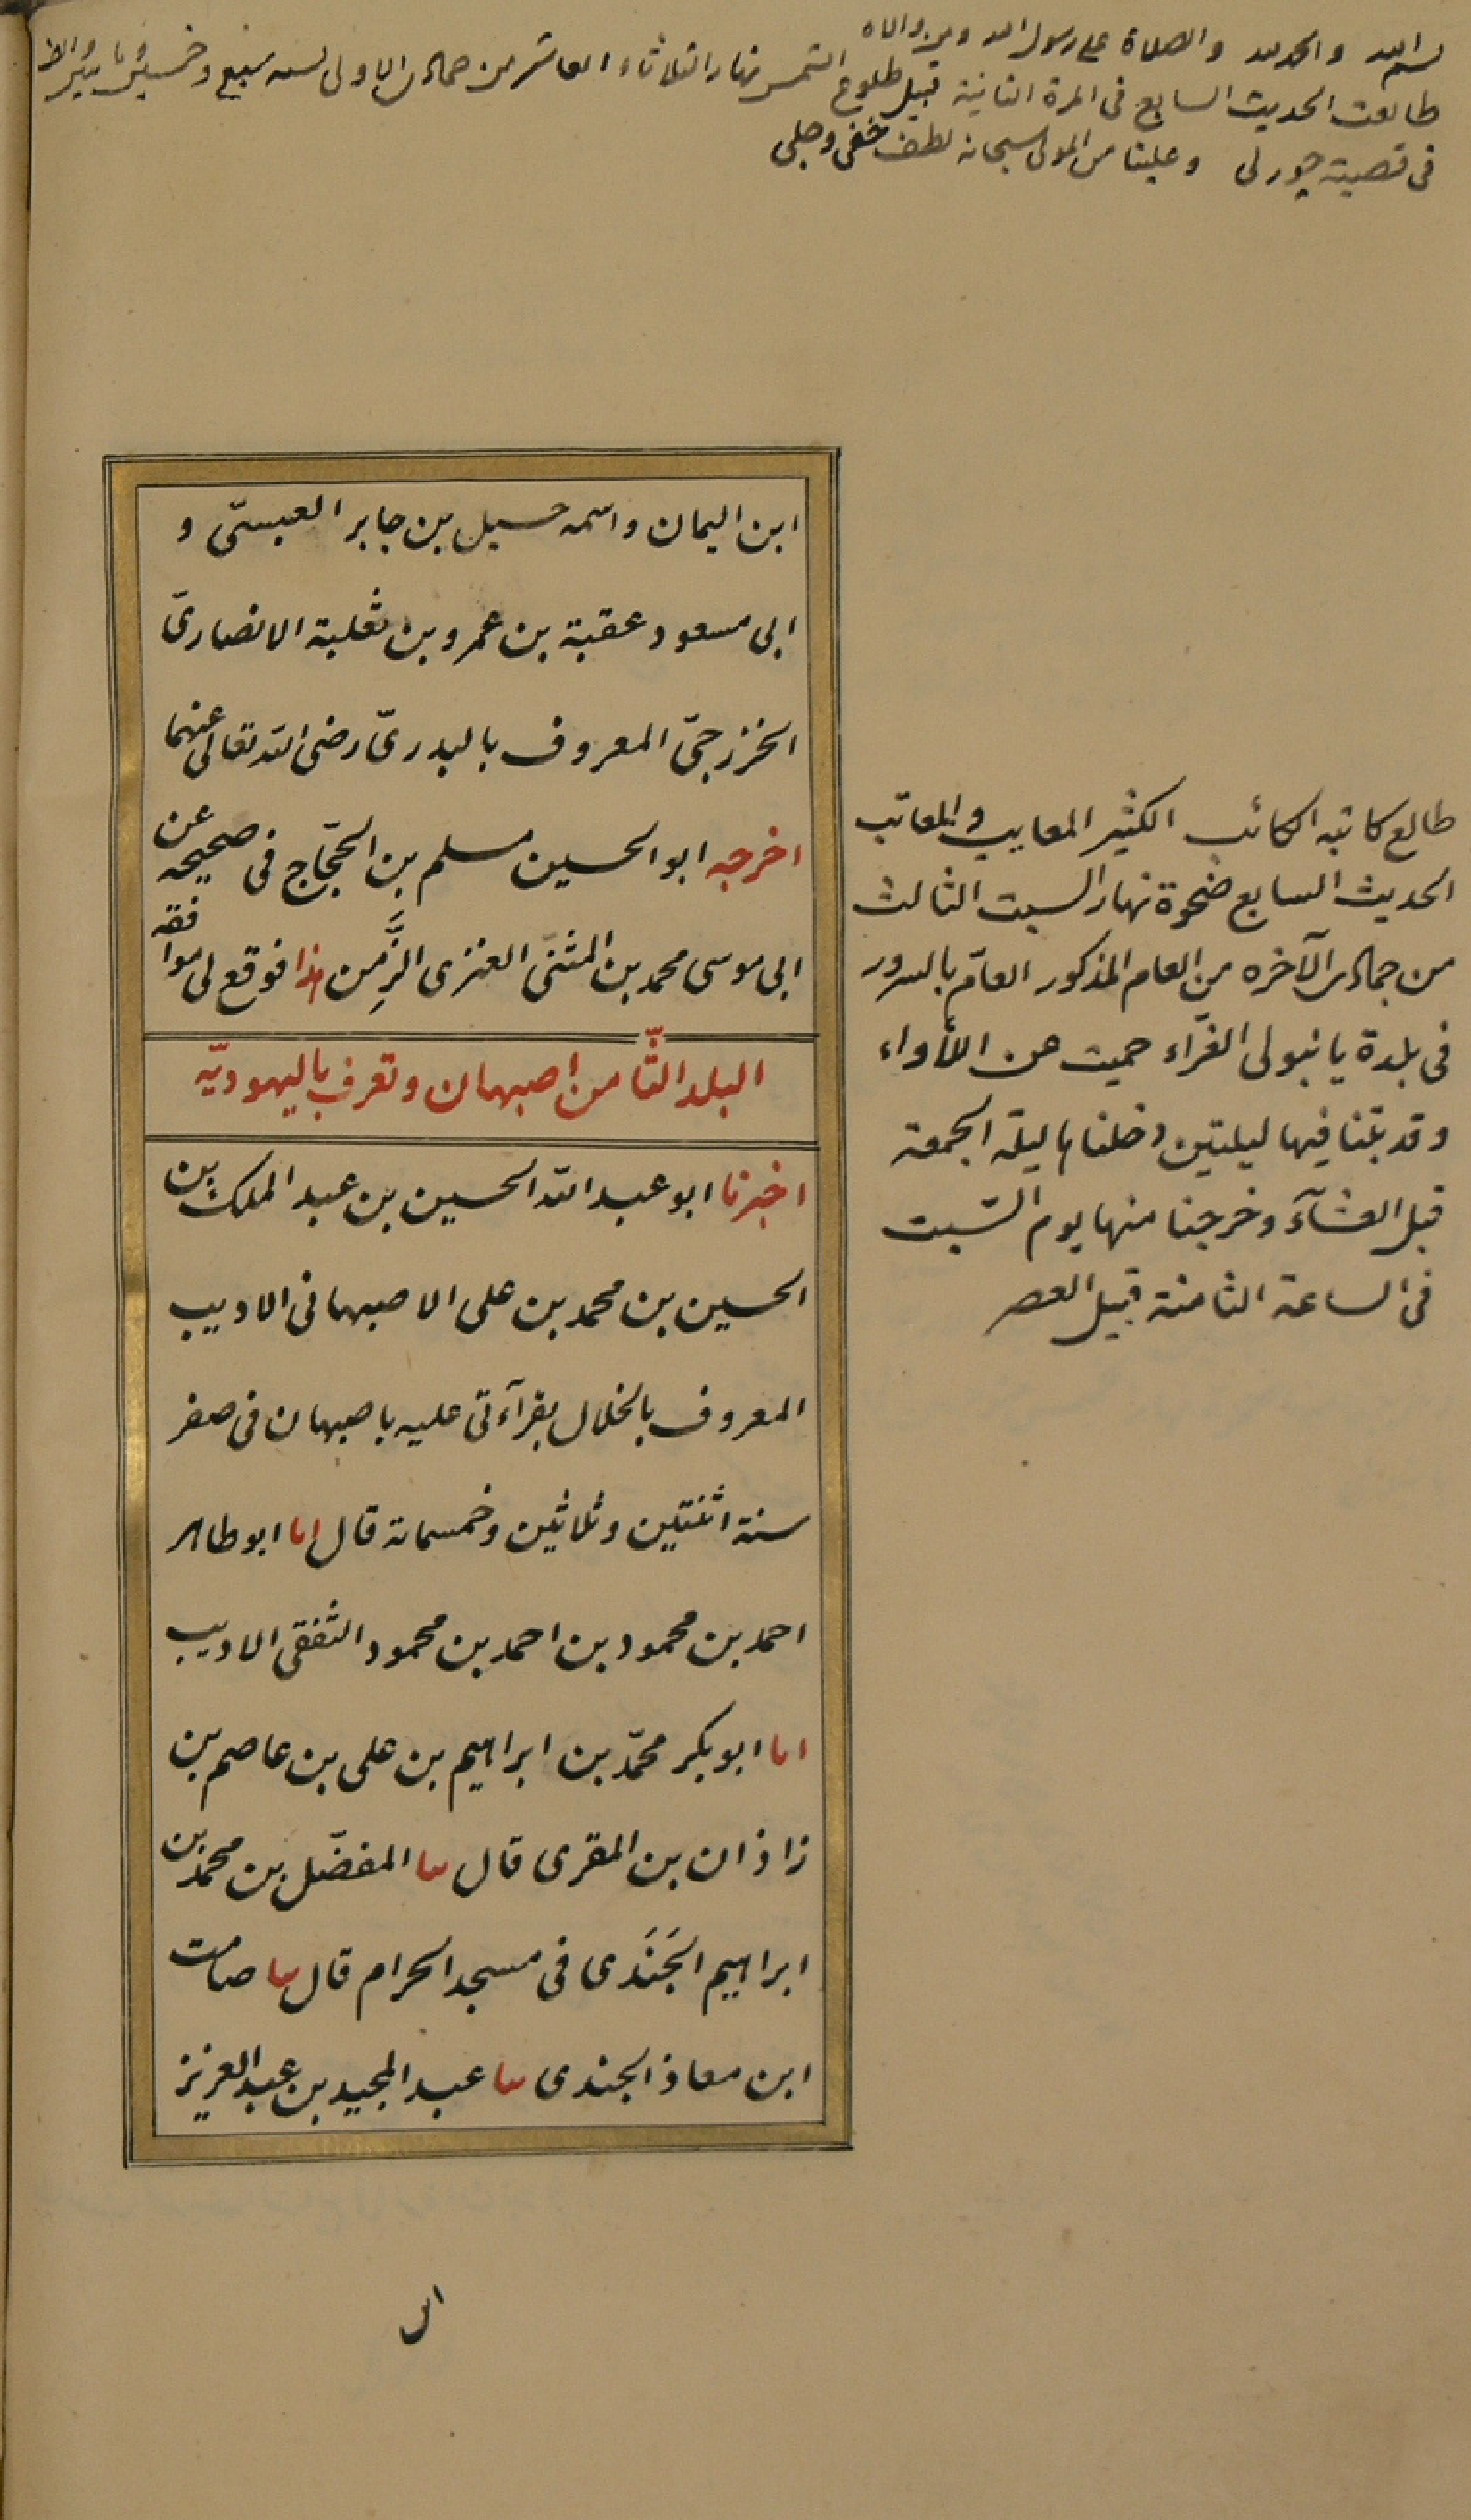 بسم الله والحمد لله والصلاة على رسول الله ومن والاه
طالعت الحديث السابع فى المرة الثانية قبيل طلوع الشمس نهار الثلاثاء العاشر من جمادى الاولى لسنة سبع وخمسين ومايتين والف
فى قصبة چورلى وعلينا من المولى سبحانه لطف خفى وجلى
ابن اليمان واسمه حسيل بن جابر العبسىّ و
ابى مسعود عقبة بن عمرو بن ثعلبة الانصارىّ
الخزرجىّ المعروف بالبدرىّ رضى الله تعالى عنهما
اخرجه ابو الحسين مسلم بن الحجّاج فى صحيحه عن
ابى موسى محمد بن المثنّى العنزى الزَّمِن هذا فوقع لى موافقه
البلد الثّامن اصبهان وتعرف باليهوديّه
اخبرنا ابو عبد الله الحسين بن عبد الملك بن
الحسين بن محمد بن على الاصبهانى الاديب
المعروف بالخلال بقرآءتى عليه باصبهان فى صفر
سنة اثنتين وثلاثين وخمسمائة قال انا ابو طاهر
احمد بن محمود بن احمد بن محمود الثقفى الاديب
انا ابو بكر محمّد بن ابراهيم بن على بن عاصم بن
زاذان بن المقرى قال سا المفضّل بن محمد بن
ابراهيم الجَنَدى فى مسجد الحرام قال سا صامت
ابن معاذ الجندى سا عبد المجيد بن عبد العزيز
طالع كاتبه الكائب الكثير المعايب والمعاتب
الحديث السابع ضحوة نهار السبت الثالث
من جمادى الآخره من العام المذكور العامّ بالسرور
فى بلدة يانبولى الغرّاء حميت عن اللأواء
وقد بتنا فيها ليلتين دخلناها ليلة الجمعة
قبل العشآء وخرجنا منها يوم السّبت
فى الساعة الثامنة قبيل العصر